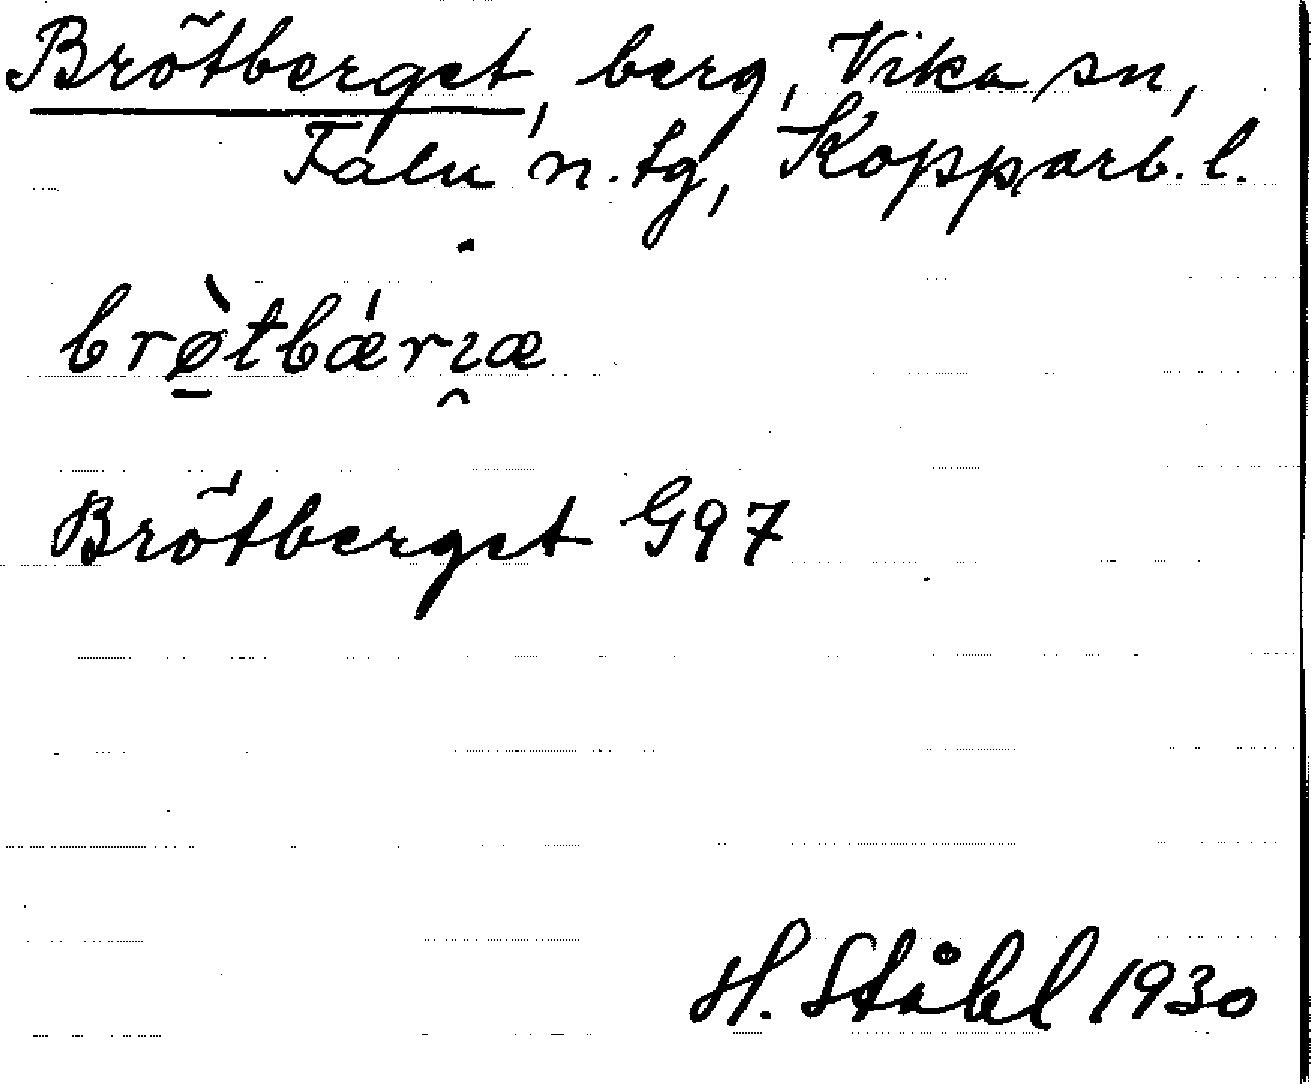 Brötberget, berg, Vika sn,
Falu n. tg, Kopparb. l.
brø̱̀tbǽrɿ̯æ
Brötberget G97
H. Ståhl 1930